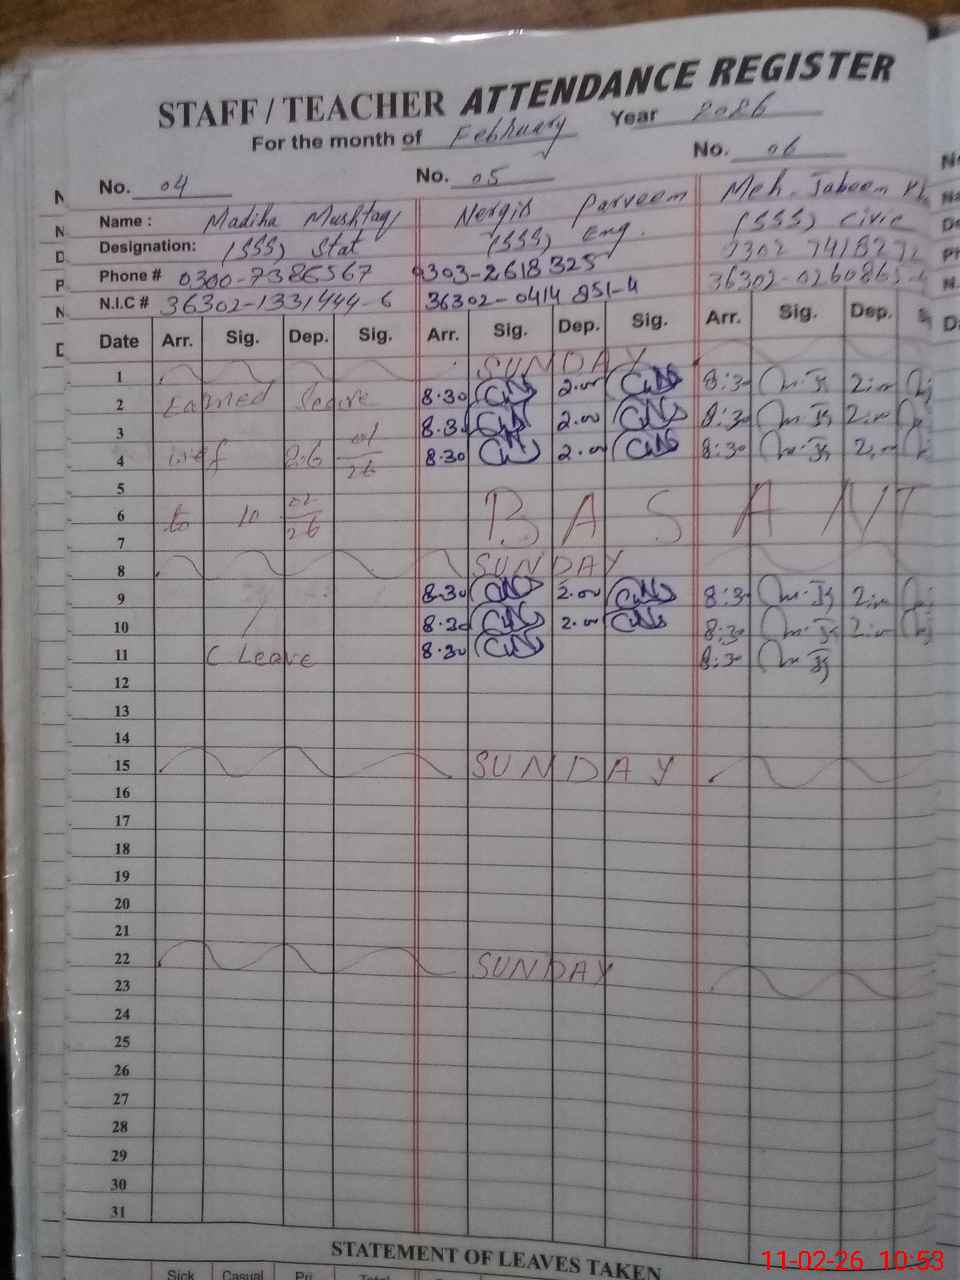 STAFF / TEACHER ATTENDANCE REGISTER
For the month of February Year 2026
No. 04 No. 05 No. 06
Name : Madiha Mushtaq Nergis Parveen Meh. Jabeen
Designation: (SSS) Stat (SSS) Eng. (SSS) Civic
Phone # 0300-7386567 0303-2618325 0302 7418272
N.I.C # 36302-1331444-6 36302-0414 851-4 36302-0260865-
Date Arr. Sig. Dep. Sig. Arr. Sig. Dep. Sig. Arr. Sig. Dep.
1 SUNDAY
2 Earned Leave 8.30 2.00 8:30 2:00
3 8.30 2.00 8:30 2:00
4 wef 26 01/26 8.30 2.00 8:30 2:00
5
6 to 10 02/26 BASANT
7
8 SUNDAY
9 8.30 2.00 8:30 2:00
10 8.30 2.00 8:30 2:00
11 C Leave 8.30 8:30
12
13
14
15 SUNDAY
16
17
18
19
20
21
22 SUNDAY
23
24
25
26
27
28
29
30
31
STATEMENT OF LEAVES TAKEN
Sick Casual Pri Total
11-02-26 10:53